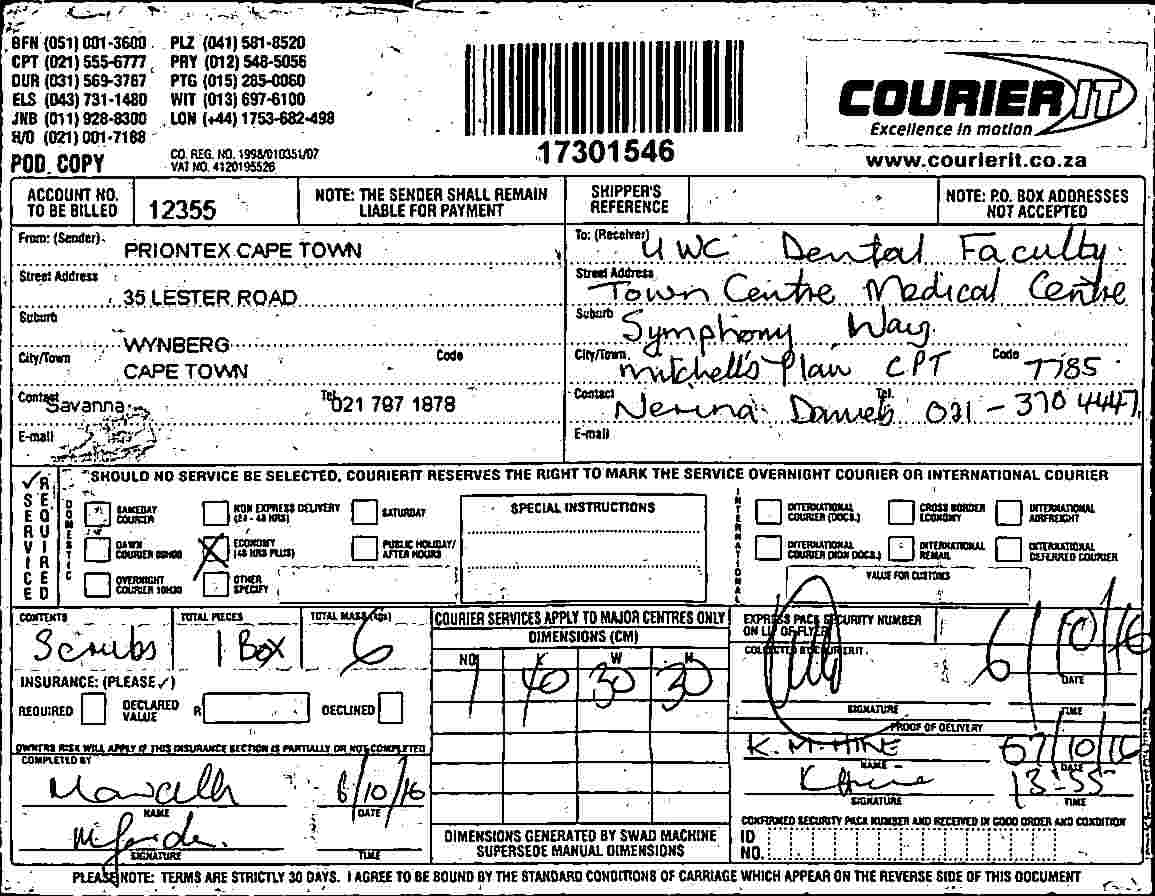 BFN (051) 001-3600 PLZ (041) 581-8520
CPT (021) 555-6777 PRY (012) 548-5056
DUR (031) 569-3767 PTG (015) 285-0060
ELS (043) 731-1480 WIT (013) 697-6100
JNB (011) 928-8300 LON (+44) 1753-682-498
H/O (021) 001-7188
POD. COPY
CO. REG. NO. 1998/010351/07
VAT NO. 4120195526
17301546
COURIER IT
Excellence in motion
www.courierit.co.za
ACCOUNT NO. TO BE BILLED 12355
NOTE: THE SENDER SHALL REMAIN LIABLE FOR PAYMENT
SHIPPER'S REFERENCE
NOTE: P.O. BOX ADDRESSES NOT ACCEPTED
From: (Sender) PRIONTEX CAPE TOWN
Street Address 35 LESTER ROAD
Suburb WYNBERG
City/Town CAPE TOWN Code
Contact Savanna Tel. 021 787 1878
E-mail
To: (Receiver) UWC Dental Faculty
Street Address Town Centre Medical Centre
Suburb Symphony Way
City/Town Mitchell's Plain CPT Code 7785
Contact Nerina Daniels Tel. 021 - 370 4447
E-mail
SERVICE REQUIRED
SHOULD NO SERVICE BE SELECTED, COURIERIT RESERVES THE RIGHT TO MARK THE SERVICE OVERNIGHT COURIER OR INTERNATIONAL COURIER
DOMESTIC
SAMEDAY COURIER
NON EXPRESS DELIVERY (24 - 48 HRS)
SATURDAY
DAWN COURIER 09H00
ECONOMY (48 HRS PLUS)
PUBLIC HOLIDAY/ AFTER HOURS
OVERNIGHT COURIER 10H30
OTHER SPECIFY
SPECIAL INSTRUCTIONS
INTERNATIONAL
INTERNATIONAL COURIER (DOCS.)
CROSS BORDER ECONOMY
INTERNATIONAL AIRFREIGHT
INTERNATIONAL COURIER (NON DOCS.)
INTERNATIONAL REMAIL
INTERNATIONAL DEFERRED COURIER
VALUE FOR CUSTOMS
CONTENTS Scrubs
TOTAL PIECES 1 Box
TOTAL MASS (kgs) 6
INSURANCE: (PLEASE ✓)
REQUIRED DECLARED VALUE R DECLINED
OWNERS RISK WILL APPLY IF THIS INSURANCE SECTION IS PARTIALLY OR NOT COMPLETED
COMPLETED BY
NAME
6/10/16
DATE
SIGNATURE
TIME
COURIER SERVICES APPLY TO MAJOR CENTRES ONLY
DIMENSIONS (CM)
NO L W H
1 40 30 30
DIMENSIONS GENERATED BY SWAD MACHINE
SUPERSEDE MANUAL DIMENSIONS
EXPRESS PACK SECURITY NUMBER
ON LL OR FLYER
COLLECTED BY COURIERIT
6/10/16
SIGNATURE
DATE
TIME
PROOF OF DELIVERY
K. M. HINE 07/10/16
NAME DATE
K Hine 13:55
SIGNATURE TIME
CONFIRMED SECURITY PACK NUMBER AND RECEIVED IN GOOD ORDER AND CONDITION
ID NO.
PLEASE NOTE: TERMS ARE STRICTLY 30 DAYS. I AGREE TO BE BOUND BY THE STANDARD CONDITIONS OF CARRIAGE WHICH APPEAR ON THE REVERSE SIDE OF THIS DOCUMENT